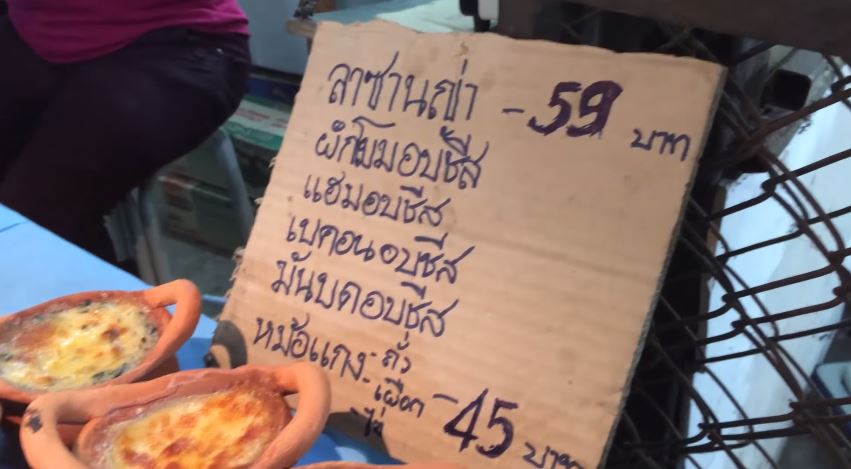 ลาซานญ่า - 59 บาท
ผักโขมอบชีส
แฮมอบชีส
เบคอนอบชีส
มันบดอบชีส
หม้อแกง - ถั่ว
- เผือก
- ไข่
- 45 บาท